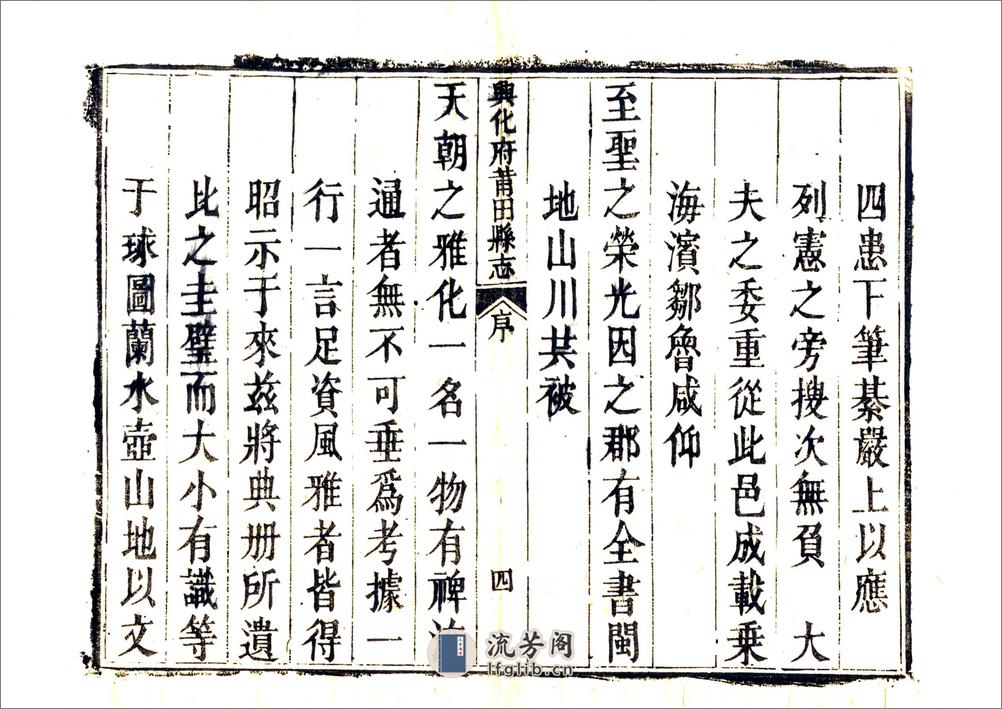 四患下筆綦嚴上以應
列憲之旁搜次無負 大
夫之委重從此邑成載乗
海濱鄒魯咸仰
至聖之榮光因之郡有全書閩
地山川共被
興化府莆田縣志 序 四
天朝之雅化一名一物有禆
通者無不可垂爲考據一
行一言足資風雅者皆得
昭示于來兹將典册所遺
比之圭璧而大小有識等
于球圖蘭水壺山地以文
流芳阁
lfglib.cn